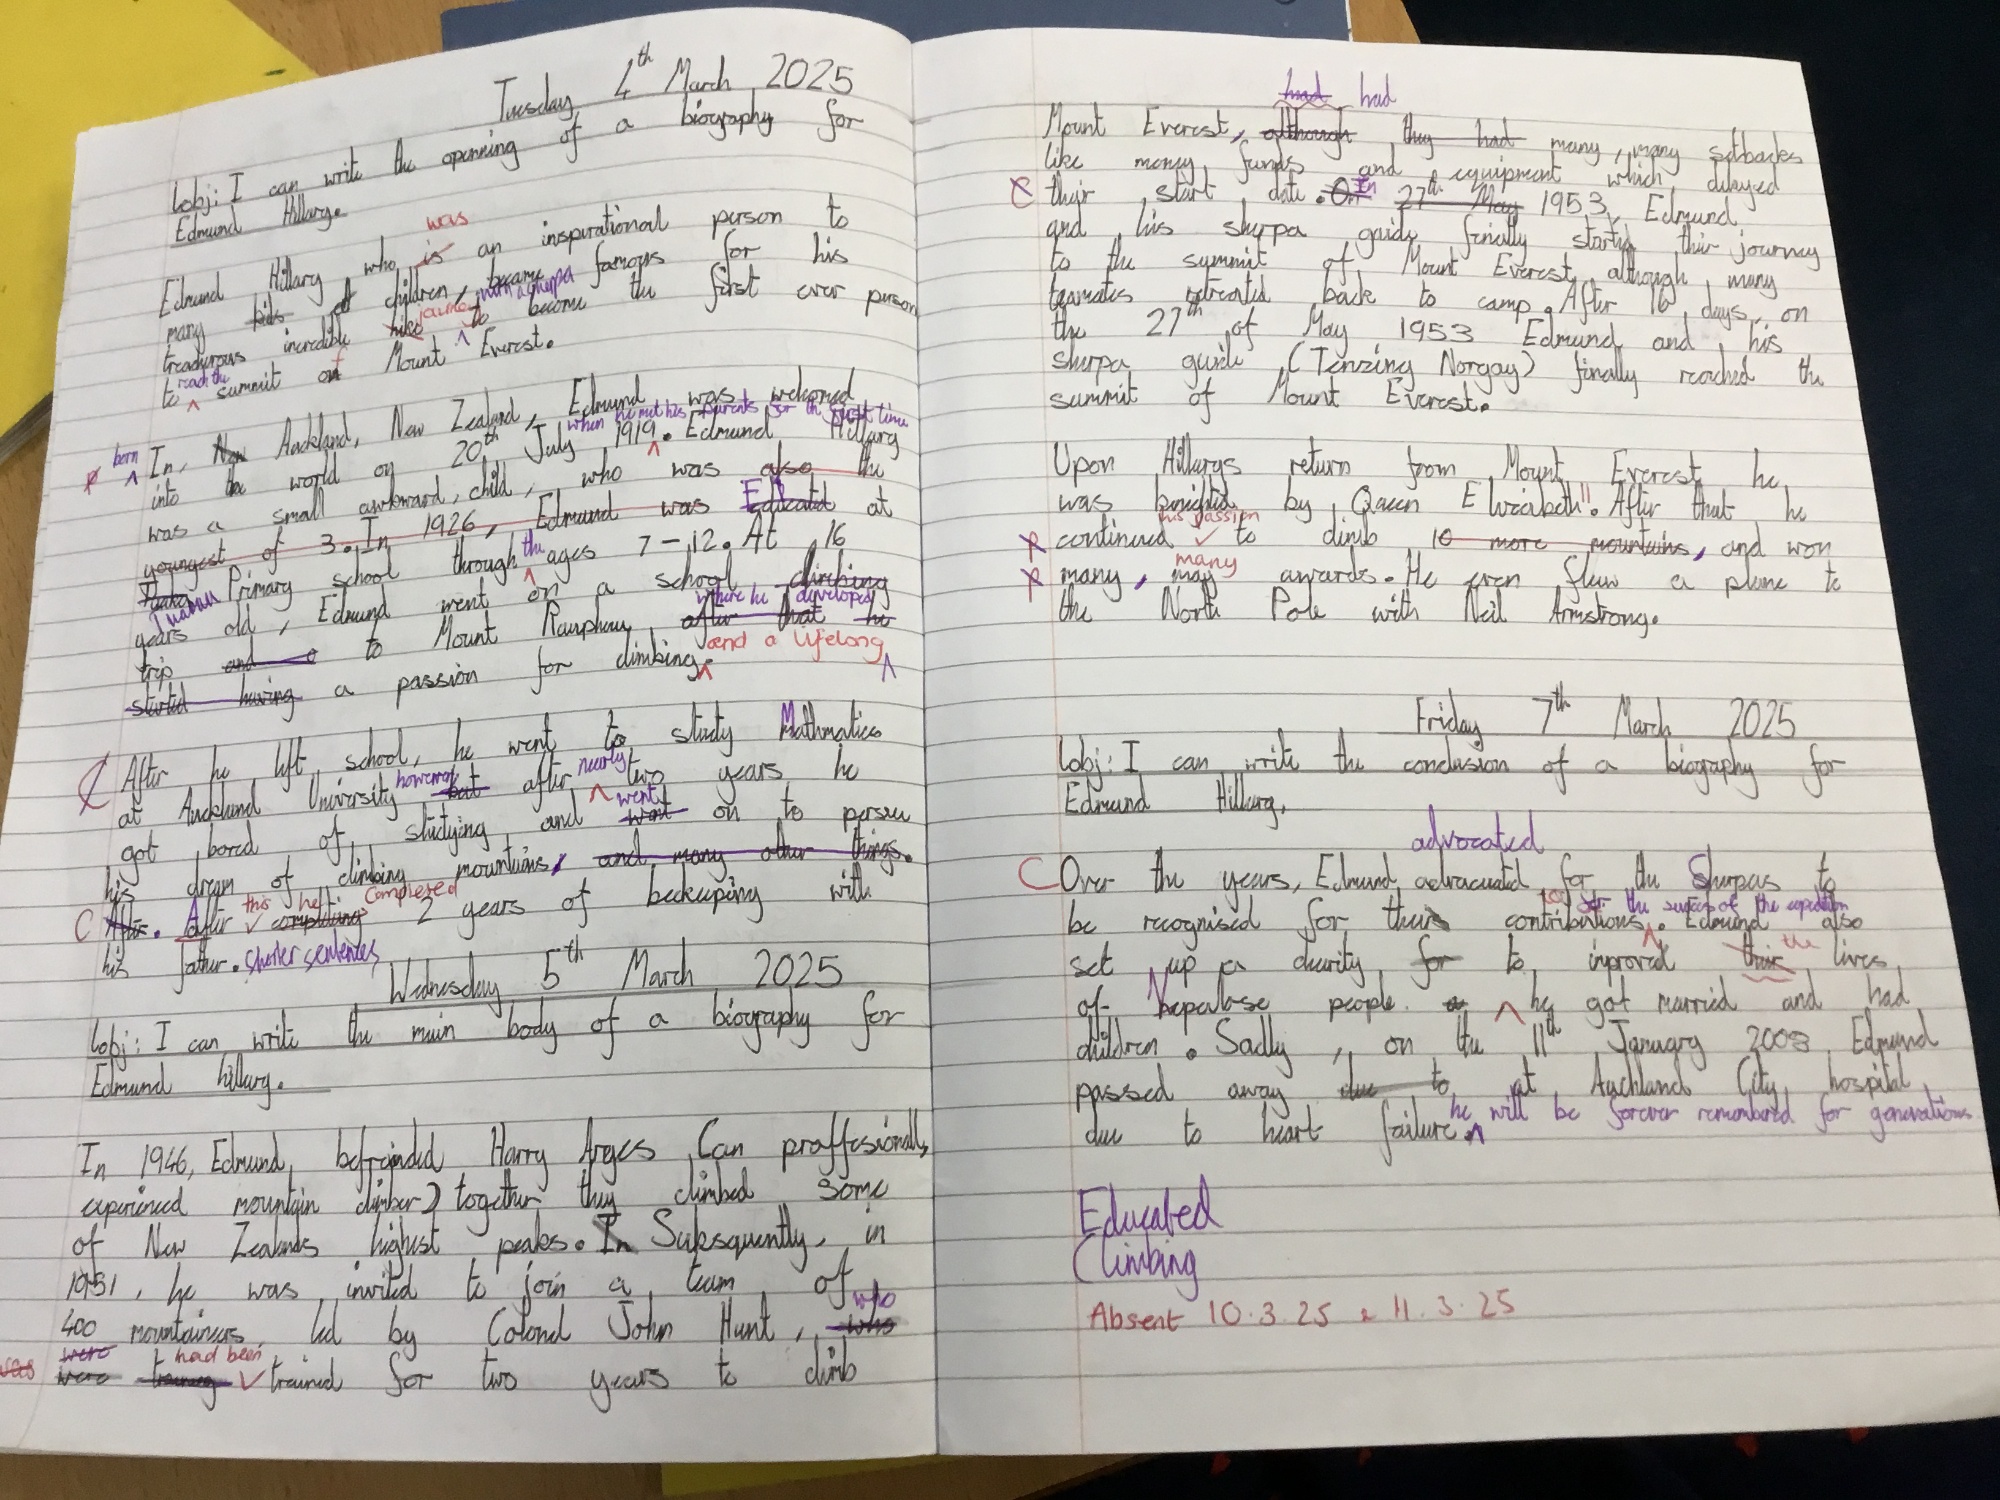 Tuesday 4th March 2025
Lobj: I can write the openning of a biography for
Edmund Hillary.
was
Edmund Hillary who is an inspirational person to
many kids of children, became famous for his
with a sherpa
treadurous incredible hike journey to become the first ever person
reach the
to summit on f Mount Everest.
born In, New Auckland, New Zealand, Edmund was welcomed
when he met his parents for the first time
into the world on 20th July 1919. Edmund Hillary
was a small awkward, child, who was also the
youngest of 3. In 1926, Edmund was Educated at
Tuakau Primary school through the ages 7-12. At 16
years old, Edmund went on a school climbing
where he developed
trip and o to Mount Raupheu, after that he
and a lifelong
started having a passion for climbing.
After he left school, he went to study Mathmatics
however nearly
at Auckland University but after two years he
went
got bored of studying, and went on to persue
his dream of climbing mountains, and many other things.
this he completed
After. After compliting 2 years of beekeeping with
his father. shorter sentences
Wednesday 5th March 2025
Lobj: I can write the main body of a biography for
Edmund hillary.
In 1946, Edmund, befrinded Harry Arges (an proffesionally
experienced mountain climber) together they climbed some
of New Zealands highest peaks. In Subsquently, in
1951, he was invited to join a team of
who
400 mountaineers, led by Colonel John Hunt, who
were had been
was were training trained for two years to climb
had had
Mount Everest, although they had many, many setbacks
like money funds and equipment which delayed
their start date. On In 27th May 1953, Edmund
and his sherpa guide finally started their journey
to the summit of Mount Everest, although many
teamates retreated back to camp. After 16 days, on
the 27th of May 1953 Edmund and his
sherpa guide (Tenzing Norgay) finally reached the
summit of Mount Everest.
Upon Hillarys return from Mount Everest he
was bonighted by Queen Elwizabeth II. After that he
his passion
continued to climb 10 more mountains, and won
many
many, may awards. He even flew a plane to
the North Pole with Neil Armstrong.
Friday 7th March 2025
Lobj: I can write the conclusion of a biography for
Edmund Hillary.
advocated
C Over the years, Edmund advacuated for the Sherpas to
for the success of the expedition
be recognised for their contributions. Edmund also
the
set up a charity for to improved their lives
of Nepalese people. he got married and had
children. Sadly, on the 11th January 2008 Edmund
passed away due to at Auckland City hospital
he will be forever remembered for generations
due to heart failure.
Educated
Climbing
Absent 10.3.25 & 11.3.25